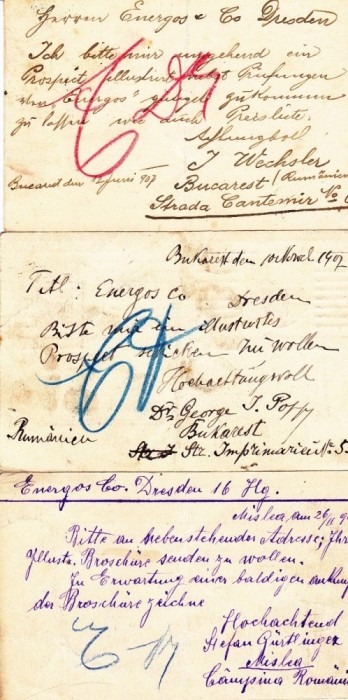 Herren Energos & Co Dresden
Ich bitte mir umgehend ein
Prospect, illustrirt nebst Prüfungen
von "Energos" gütigst zukommen
zu lassen wie auch Preisliste.
Achtungsvoll
J Wechsler
Bucarest den Juni 907
Bucarest (Rumänien
Strada Cantemir No
Bukarest den 1907
Titl: Energos Co Dresden
Bitte mir ein illustrirtes
Prospect schicken zu wollen
Hochachtungsvoll
Dr George I. Popp
Rumänien
Bukarest
Str. Imprimeriei No. 5
Energos Co. Dresden 16 Hg.
Mislea, am 26/II 9
Bitte an nebenstehender Adresse, Ihre
Illustr. Broschüre senden zu wollen.
In Erwartung einer baldigen
der Broschüre zeichne
Hochachtend
Stefan Gürtlinger
Mislea
Câmpina România